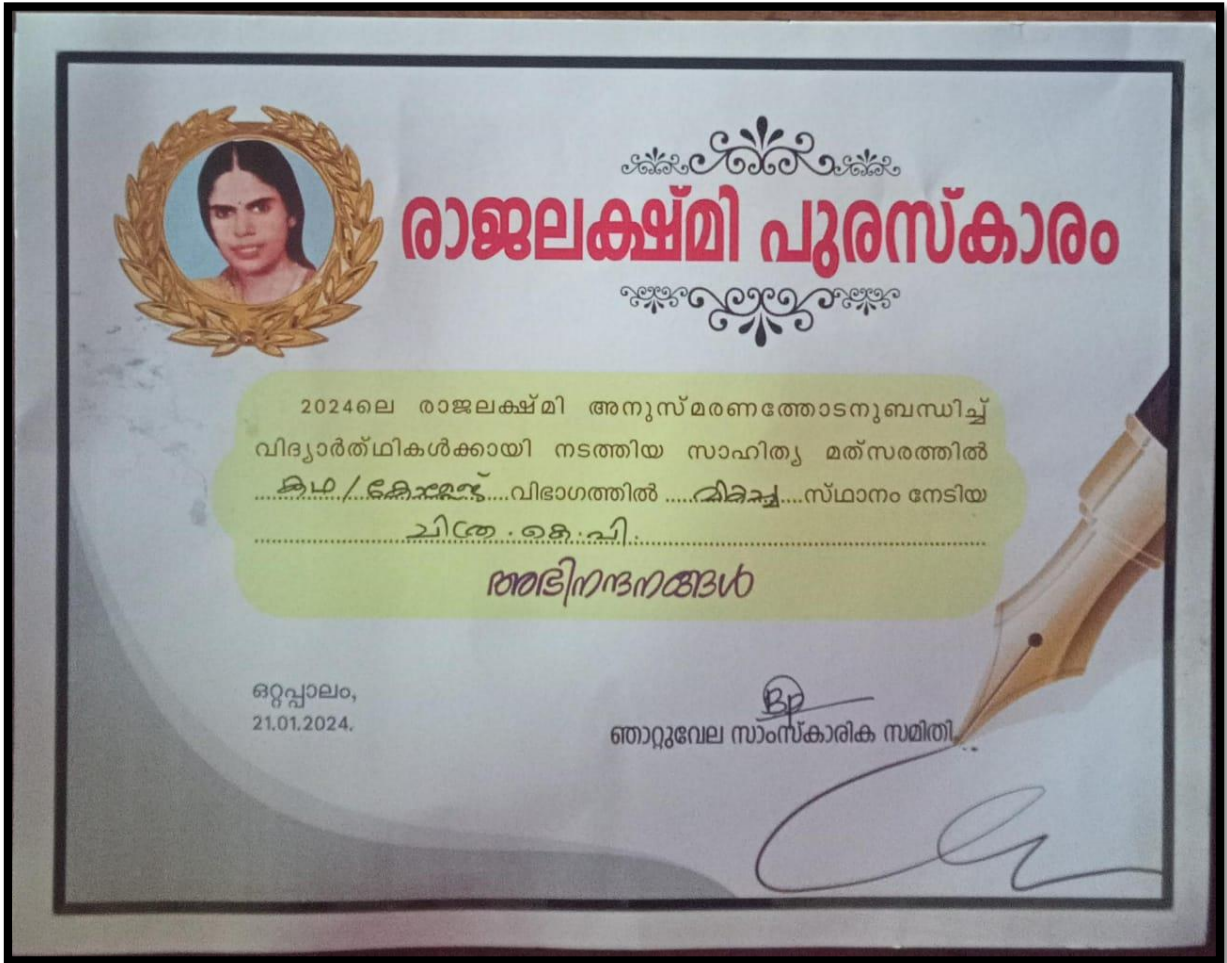 രാജലക്ഷ്മി പുരസ്കാരം
2024ലെ രാജലക്ഷ്മി അനുസ്മരണത്തോടനുബന്ധിച്ച്
വിദ്യാർത്ഥികൾക്കായി നടത്തിയ സാഹിത്യ മത്സരത്തിൽ
കഥ / കോളേജ് വിഭാഗത്തിൽ മികച്ച സ്ഥാനം നേടിയ
ചിത്ര. കെ. പി.
അഭിനന്ദനങ്ങൾ
ഒറ്റപ്പാലം,
21.01.2024.
BP
ഞാറ്റുവേല സാംസ്കാരിക സമിതി